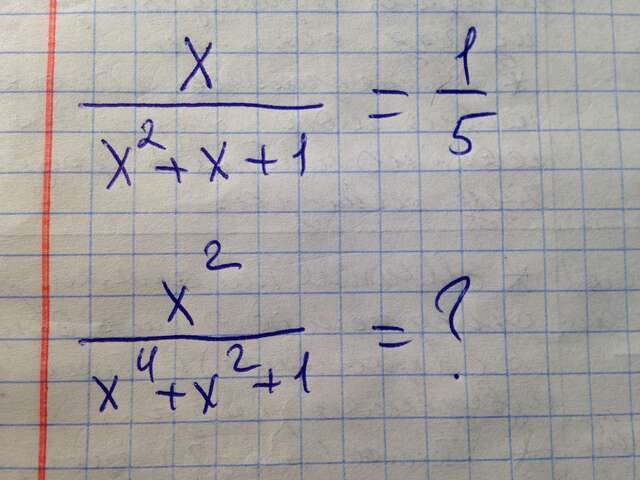 x / (x² + x + 1) = 1/5
x² / (x⁴ + x² + 1) = ?